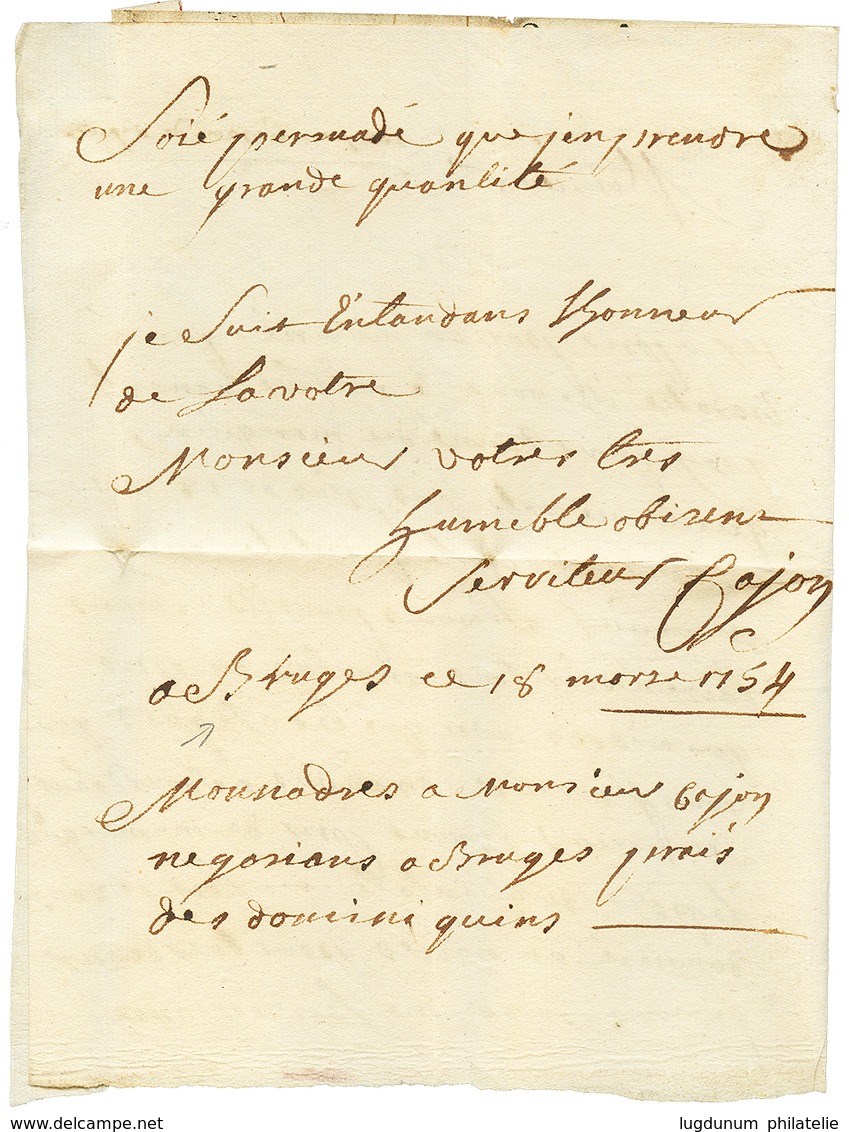 Soié persuadé que jen prendre
une grande quantité
je suit Entandans lhonneur
de la votre
Monsieur votres tres
humeble obisent
serviteur Cajon
a Bruges ce 18 marse 1754
Mounadres a Monsieur Cajon
negosians a Bruges prais
des dominiquins
www.delcampe.net
lugdunum philatelie